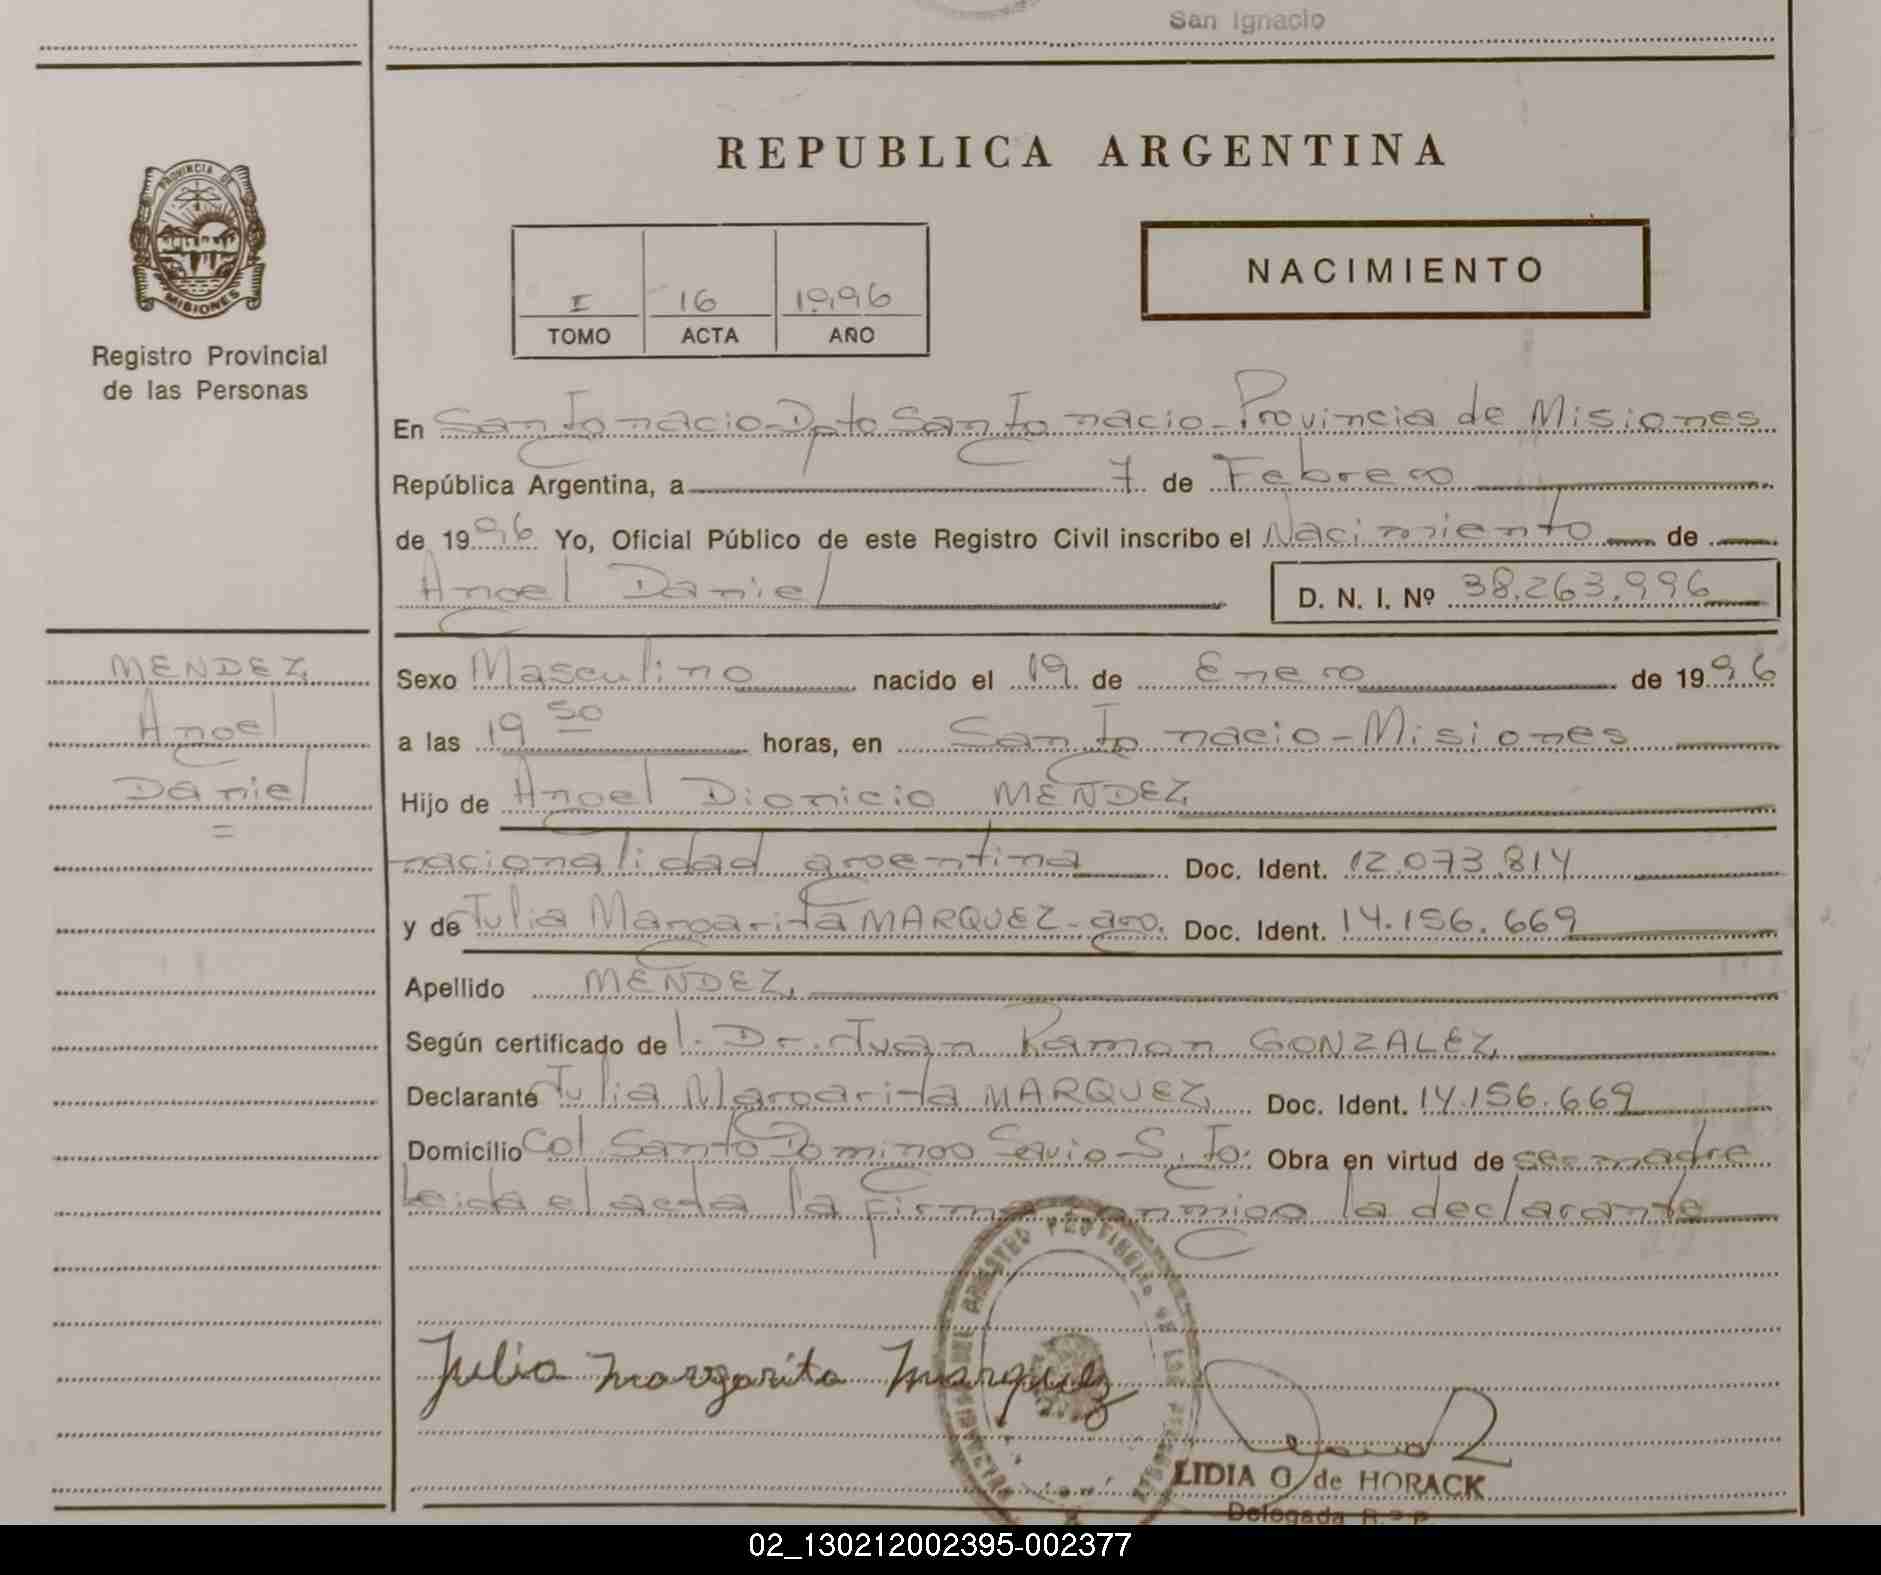 San Ignacio
REPUBLICA ARGENTINA
PROVINCIA DE
MISIONES
Registro Provincial
de las Personas
I 16 1996
TOMO ACTA AÑO
NACIMIENTO
En San Ignacio-Dpto San Ignacio-Provincia de Misiones
República Argentina, a 7 de Febrero
de 1996 Yo, Oficial Público de este Registro Civil inscribo el Nacimiento de
Angel Daniel D. N. I. Nº 38.263.996
MENDEZ,
Angel
Daniel
=
Sexo Masculino nacido el 19 de Enero de 1996
a las 19 50 horas, en San Ignacio-Misiones
Hijo de Angel Dionicio MENDEZ,
nacionalidad argentina Doc. Ident. 12.073.814
y de Julia Margarita MARQUEZ-arg. Doc. Ident. 14.156.669
Apellido MENDEZ,
Según certificado de l. Dr. Juan Ramon GONZALEZ,
Declarante Julia Margarita MARQUEZ, Doc. Ident. 14.156.669
Domicilio Col. Santo Domingo Savio-S. Ig. Obra en virtud de ser madre
Leida el acta la firma conmigo la declarante
Julia Margarita Marquez
LIDIA G. de HORACK
Delegada R.P.P.
02_130212002395-002377